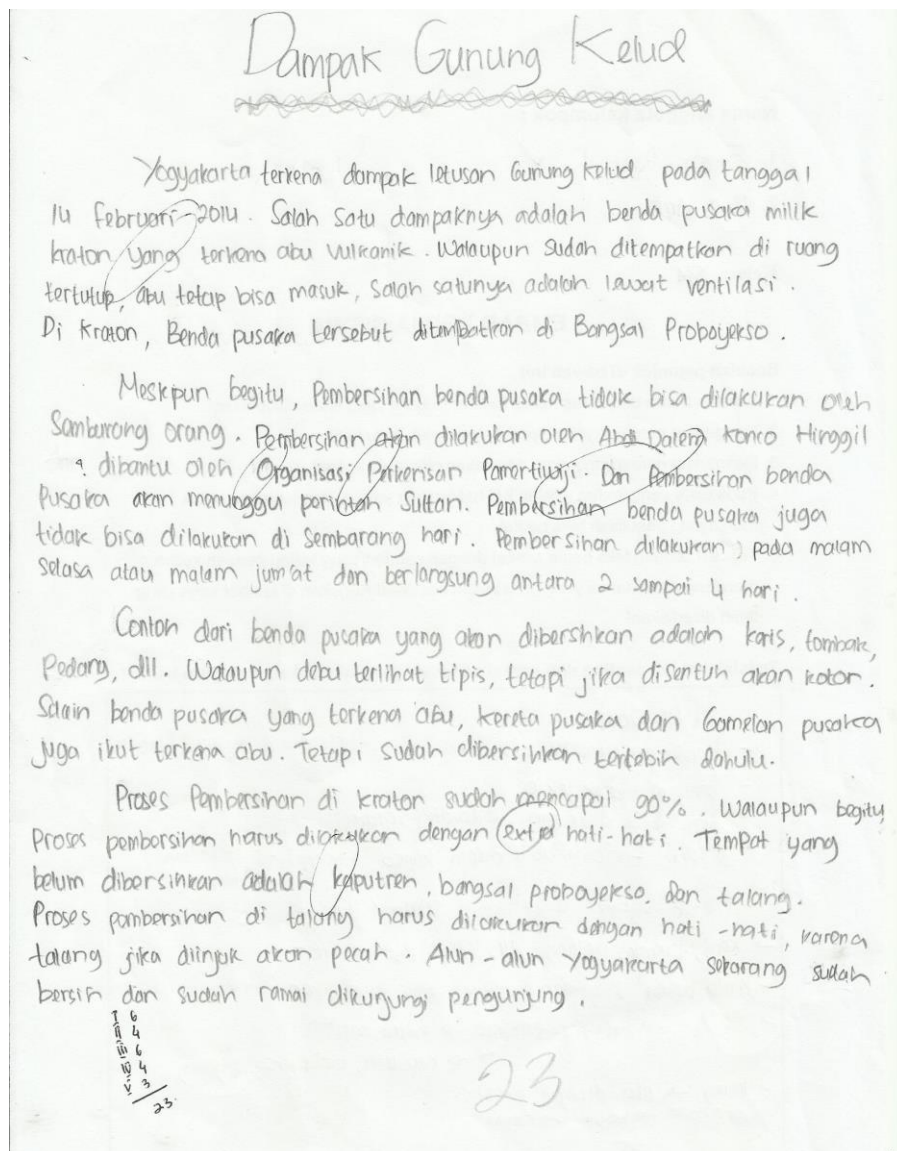 Dampak Gunung Kelud
Yogyakarta terkena dampak letusan Gunung Kelud pada tanggal
14 Februari 2014. Salah satu dampaknya adalah benda pusaka milik
kraton yang terkena abu vulkanik. Walaupun sudah ditempatkan di ruang
tertutup, abu tetap bisa masuk, salah satunya adalah lewat ventilasi.
Di Kraton, Benda pusaka tersebut ditempatkan di Bangsal Proboyekso.
Meskipun begitu, Pembersihan benda pusaka tidak bisa dilakukan oleh
Sembarang orang. Pembersihan akan dilakukan oleh Abdi Dalem Konco Hinggil
dibantu oleh Organisasi Perkerisan Pamertiwiji. Dan Pembersihan benda
Pusaka akan menunggu perintah Sultan. Pembersihan benda pusaka juga
tidak bisa dilakukan di Sembarang hari. Pembersihan dilakukan, pada malam
Selasa atau malam jum'at dan berlangsung antara 2 sampai 4 hari.
Contoh dari benda pusaka yang akan dibershkan adalah keris, tombak,
Pedang, dll. Walaupun debu terlihat tipis, tetapi jika disentuh akan kotor.
Selain benda pusaka yang terkena abu, kereta pusaka dan Gamelan pusaka
juga ikut terkena abu. Tetapi sudah dibersihkan terlebih dahulu.
Proses Pembersihan di kraton sudah mencapai 90%. Walaupun begitu,
Proses pembersihan harus dilakukan dengan extra hati-hati. Tempat yang
belum dibersihkan adalah kaputren, bangsal proboyekso, dan talang.
Proses pembersihan di talang harus dilakukan dengan hati-hati, karena
talang jika diinjak akan pecah. Alun-alun Yogyakarta sekarang sudah
bersih dan sudah ramai dikunjungi pengunjung.
I 6
II 4
III 6
IV 4
V 3
23
23